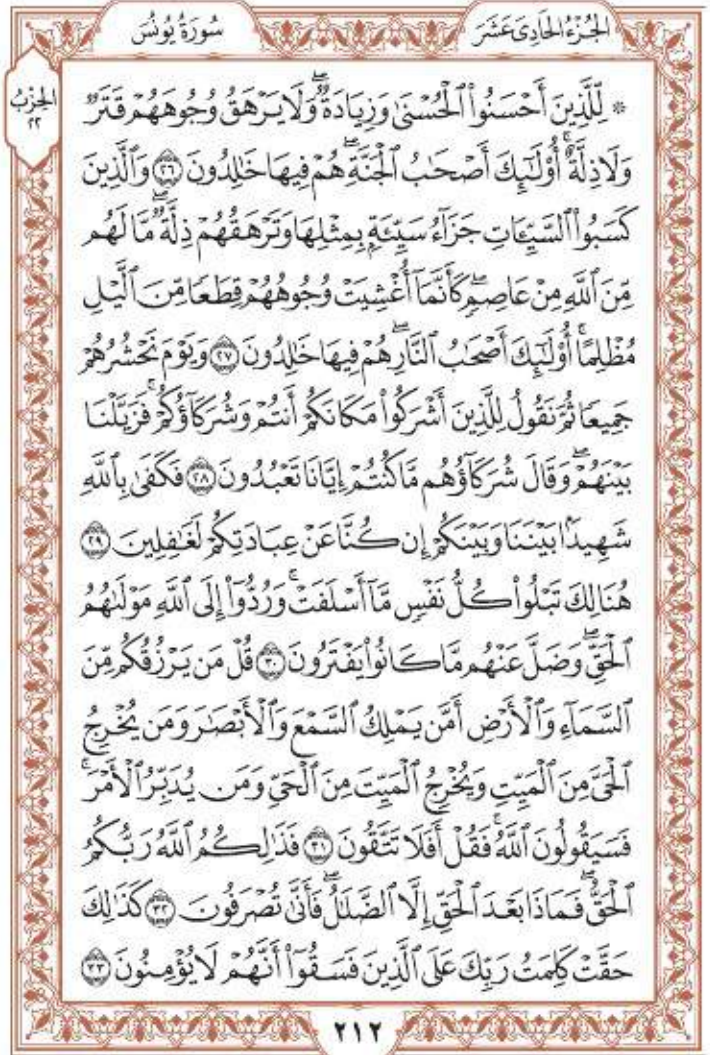 الجُزْءُ الحَادِى عَشَرَ
سُورَةُ يُونُسَ
الحِزْبُ
٢٢
۞ لِّلَّذِينَ أَحْسَنُوا۟ ٱلْحُسْنَىٰ وَزِيَادَةٌ ۖ وَلَا يَرْهَقُ وُجُوهَهُمْ قَتَرٌ
وَلَا ذِلَّةٌ ۚ أُو۟لَٰٓئِكَ أَصْحَٰبُ ٱلْجَنَّةِ ۖ هُمْ فِيهَا خَٰلِدُونَ ٢٦ وَٱلَّذِينَ
كَسَبُوا۟ ٱلسَّيِّـَٔاتِ جَزَآءُ سَيِّئَةٍۭ بِمِثْلِهَا وَتَرْهَقُهُمْ ذِلَّةٌ ۖ مَّا لَهُم
مِّنَ ٱللَّهِ مِنْ عَاصِمٍ ۖ كَأَنَّمَآ أُغْشِيَتْ وُجُوهُهُمْ قِطَعًا مِّنَ ٱلَّيْلِ
مُظْلِمًا ۚ أُو۟لَٰٓئِكَ أَصْحَٰبُ ٱلنَّارِ ۖ هُمْ فِيهَا خَٰلِدُونَ ٢٧ وَيَوْمَ نَحْشُرُهُمْ
جَمِيعًا ثُمَّ نَقُولُ لِلَّذِينَ أَشْرَكُوا۟ مَكَانَكُمْ أَنتُمْ وَشُرَكَآؤُكُمْ ۚ فَزَيَّلْنَا
بَيْنَهُمْ ۖ وَقَالَ شُرَكَآؤُهُم مَّا كُنتُمْ إِيَّانَا تَعْبُدُونَ ٢٨ فَكَفَىٰ بِٱللَّهِ
شَهِيدًۢا بَيْنَنَا وَبَيْنَكُمْ إِن كُنَّا عَنْ عِبَادَتِكُمْ لَغَٰفِلِينَ ٢٩
هُنَالِكَ تَبْلُوا۟ كُلُّ نَفْسٍ مَّآ أَسْلَفَتْ ۚ وَرُدُّوٓا۟ إِلَى ٱللَّهِ مَوْلَىٰهُمُ
ٱلْحَقِّ ۖ وَضَلَّ عَنْهُم مَّا كَانُوا۟ يَفْتَرُونَ ٣٠ قُلْ مَن يَرْزُقُكُم مِّنَ
ٱلسَّمَآءِ وَٱلْأَرْضِ أَمَّن يَمْلِكُ ٱلسَّمْعَ وَٱلْأَبْصَٰرَ وَمَن يُخْرِجُ
ٱلْحَىَّ مِنَ ٱلْمَيِّتِ وَيُخْرِجُ ٱلْمَيِّتَ مِنَ ٱلْحَىِّ وَمَن يُدَبِّرُ ٱلْأَمْرَ ۚ
فَسَيَقُولُونَ ٱللَّهُ ۚ فَقُلْ أَفَلَا تَتَّقُونَ ٣١ فَذَٰلِكُمُ ٱللَّهُ رَبُّكُمُ
ٱلْحَقُّ ۖ فَمَاذَا بَعْدَ ٱلْحَقِّ إِلَّا ٱلضَّلَٰلُ ۖ فَأَنَّىٰ تُصْرَفُونَ ٣٢ كَذَٰلِكَ
حَقَّتْ كَلِمَتُ رَبِّكَ عَلَى ٱلَّذِينَ فَسَقُوٓا۟ أَنَّهُمْ لَا يُؤْمِنُونَ ٣٣
٢١٢